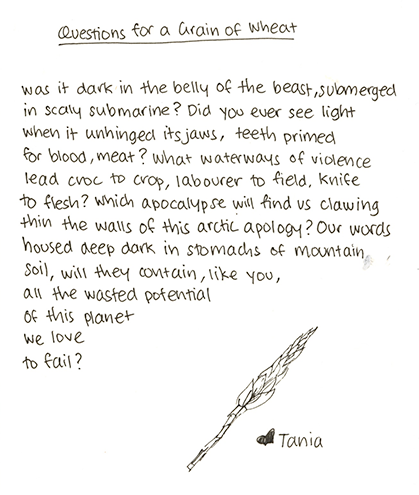 Questions for a Grain of Wheat
was it dark in the belly of the beast, submerged
in scaly submarine? Did you ever see light
when it unhinged its jaws, teeth primed
for blood, meat? What waterways of violence
lead croc to crop, labourer to field, knife
to flesh? Which apocalypse will find us clawing
thin the walls of this arctic apology? Our words
housed deep dark in stomachs of mountain
soil, will they contain, like you,
all the wasted potential
of this planet
we love
to fail?
Tania